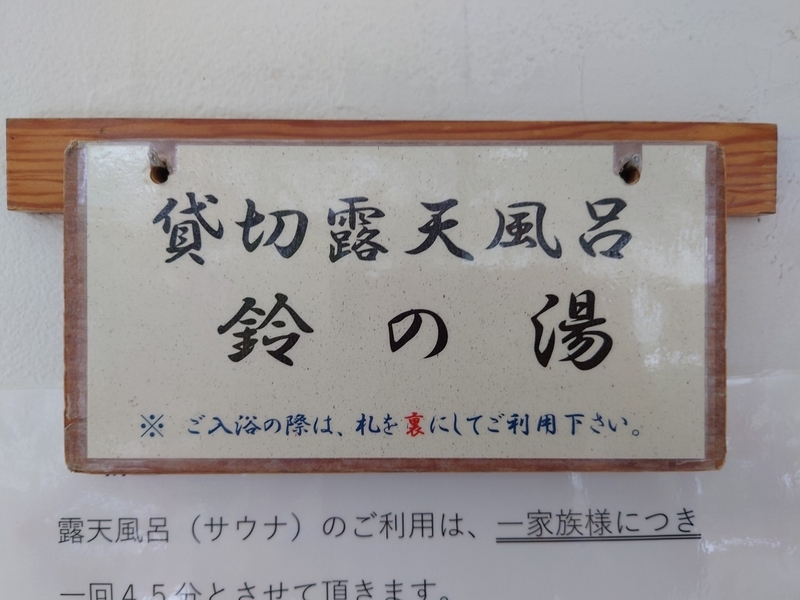 貸切露天風呂
鈴の湯
※ ご入浴の際は、札を裏にしてご利用下さい。
露天風呂（サウナ）のご利用は、一家族様につき
一回４５分とさせて頂きます。